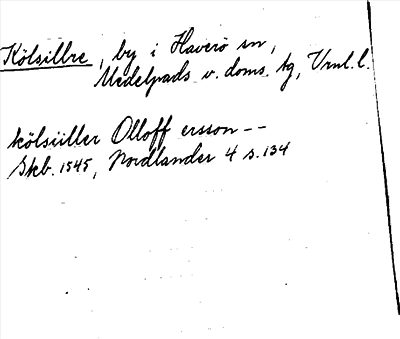 Kölsillre, by i Haverö sn,
Medelpads v. doms. tg, Vrnl. l.
kölsiiller Olloff ersson --
Skb. 1545, Nordlander 4 s. 134